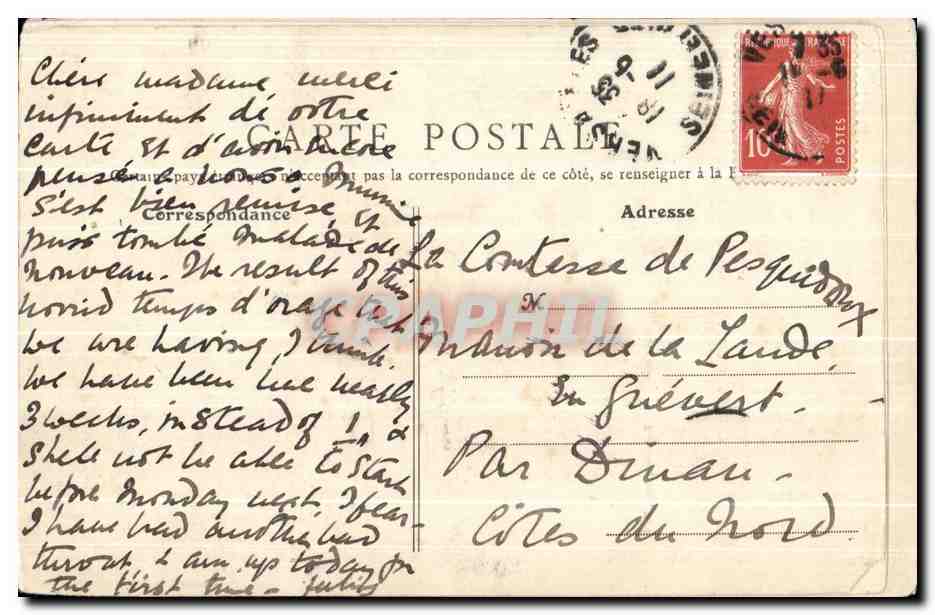 Chère madame, merci
infiniment de votre
carte et d'avoir encore
pensée à nous. Mimie
s'est bien remise, et
puis tombé malade de
nouveau. The result of this
horrid temps d'orage that
we are having, I think.
We have been here nearly
3 weeks, instead of 1, &
shall not be able to start
before Monday next, I fear.
I have had another bad
throat, & am up today for
the first time -
CARTE POSTALE
pas la correspondance de ce côté, se renseigner à la
Correspondance
Adresse
La Comtesse de Pesquidoux
N.
Manoir de la Lande,
En Quévert.
Par Dinan -
Côtes du Nord.
RÉPUBLIQUE FRANÇAISE
10
POSTES
SEINE
CPAPHIL